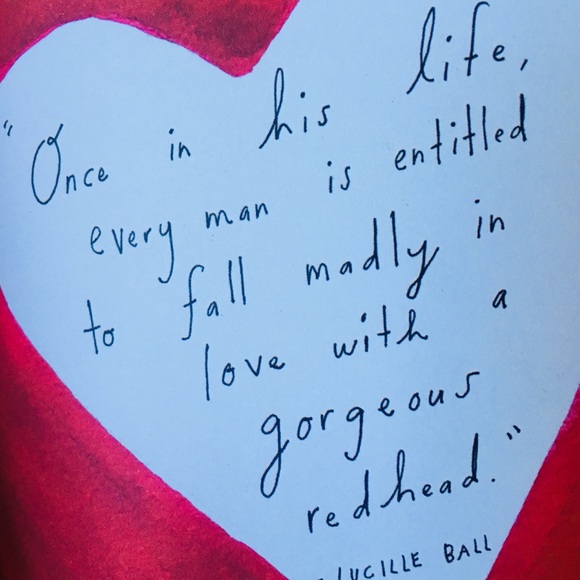 "Once in his life,
every man is entitled
to fall madly in
love with a
gorgeous
redhead."
- LUCILLE BALL